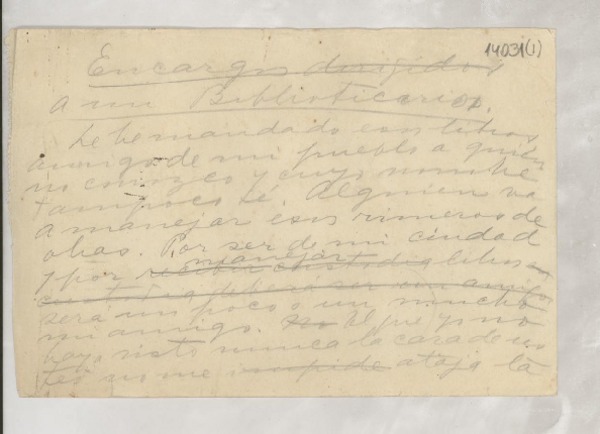 14031(1)
Encargos dirigidos
a un Bibliotecario.
Le he mandado esos libros
amigo de mi pueblo a quien
no conozco y cuyo nombre
tampoco sé. Alguien va
a manejar esos rimeros de
obras. Por ser de mi ciudad
y por manejar libros
será un poco o un mucho
mi amigo. No El que yo no
haya visto nunca la cara de us
ted no me impide ataja la